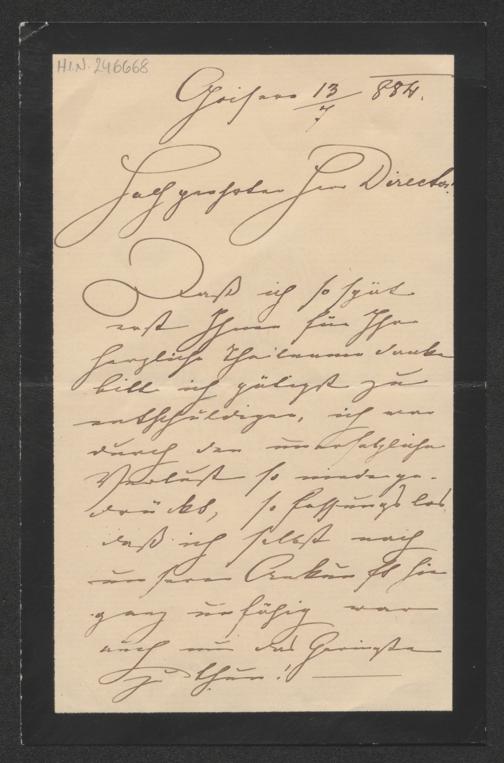 H.I.N. 246668
Goisern 13/7 884.
Hochgeehrter Herr Director!
Daß ich so spät
erst Ihnen für Ihre
herzliche Theilname danke
bitte ich gütigst zu
entschuldigen, ich war
durch den unersetzlichen
Verlust so niederge-
drückt, so fassungslos
daß ich selbst nach
unserer Ankunft hier
ganz unfähig war
auch nur das Geringste
zu thun! —